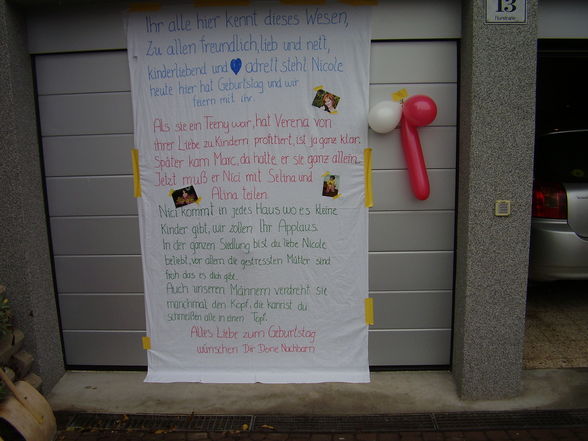 Ihr alle hier kennt dieses Wesen,
Zu allen freundlich, lieb und nett,
kinderliebend und adrett steht Nicole
heute hier hat Geburtstag und wir
feiern mit ihr.
Als sie ein Teeny war, hat Verena von
ihrer Liebe zu Kindern profitiert, ist ja ganz klar.
Später kam Marc, da hatte er sie ganz allein.
Jetzt muß er Nici mit Selina und
Alina teilen.
Nici kommt in jedes Haus wo es kleine
Kinder gibt, wir zollen Ihr Applaus.
In der ganzen Siedlung bist du liebe Nicole
beliebt, vor allem die gestressten Mütter sind
froh das es dich gibt.
Auch unseren Männern verdreht sie
manchmal den Kopf, die kannst du
schmeißen alle in einen Topf.
Alles Liebe zum Geburtstag
wünschen Dir Deine Nachbarn
13